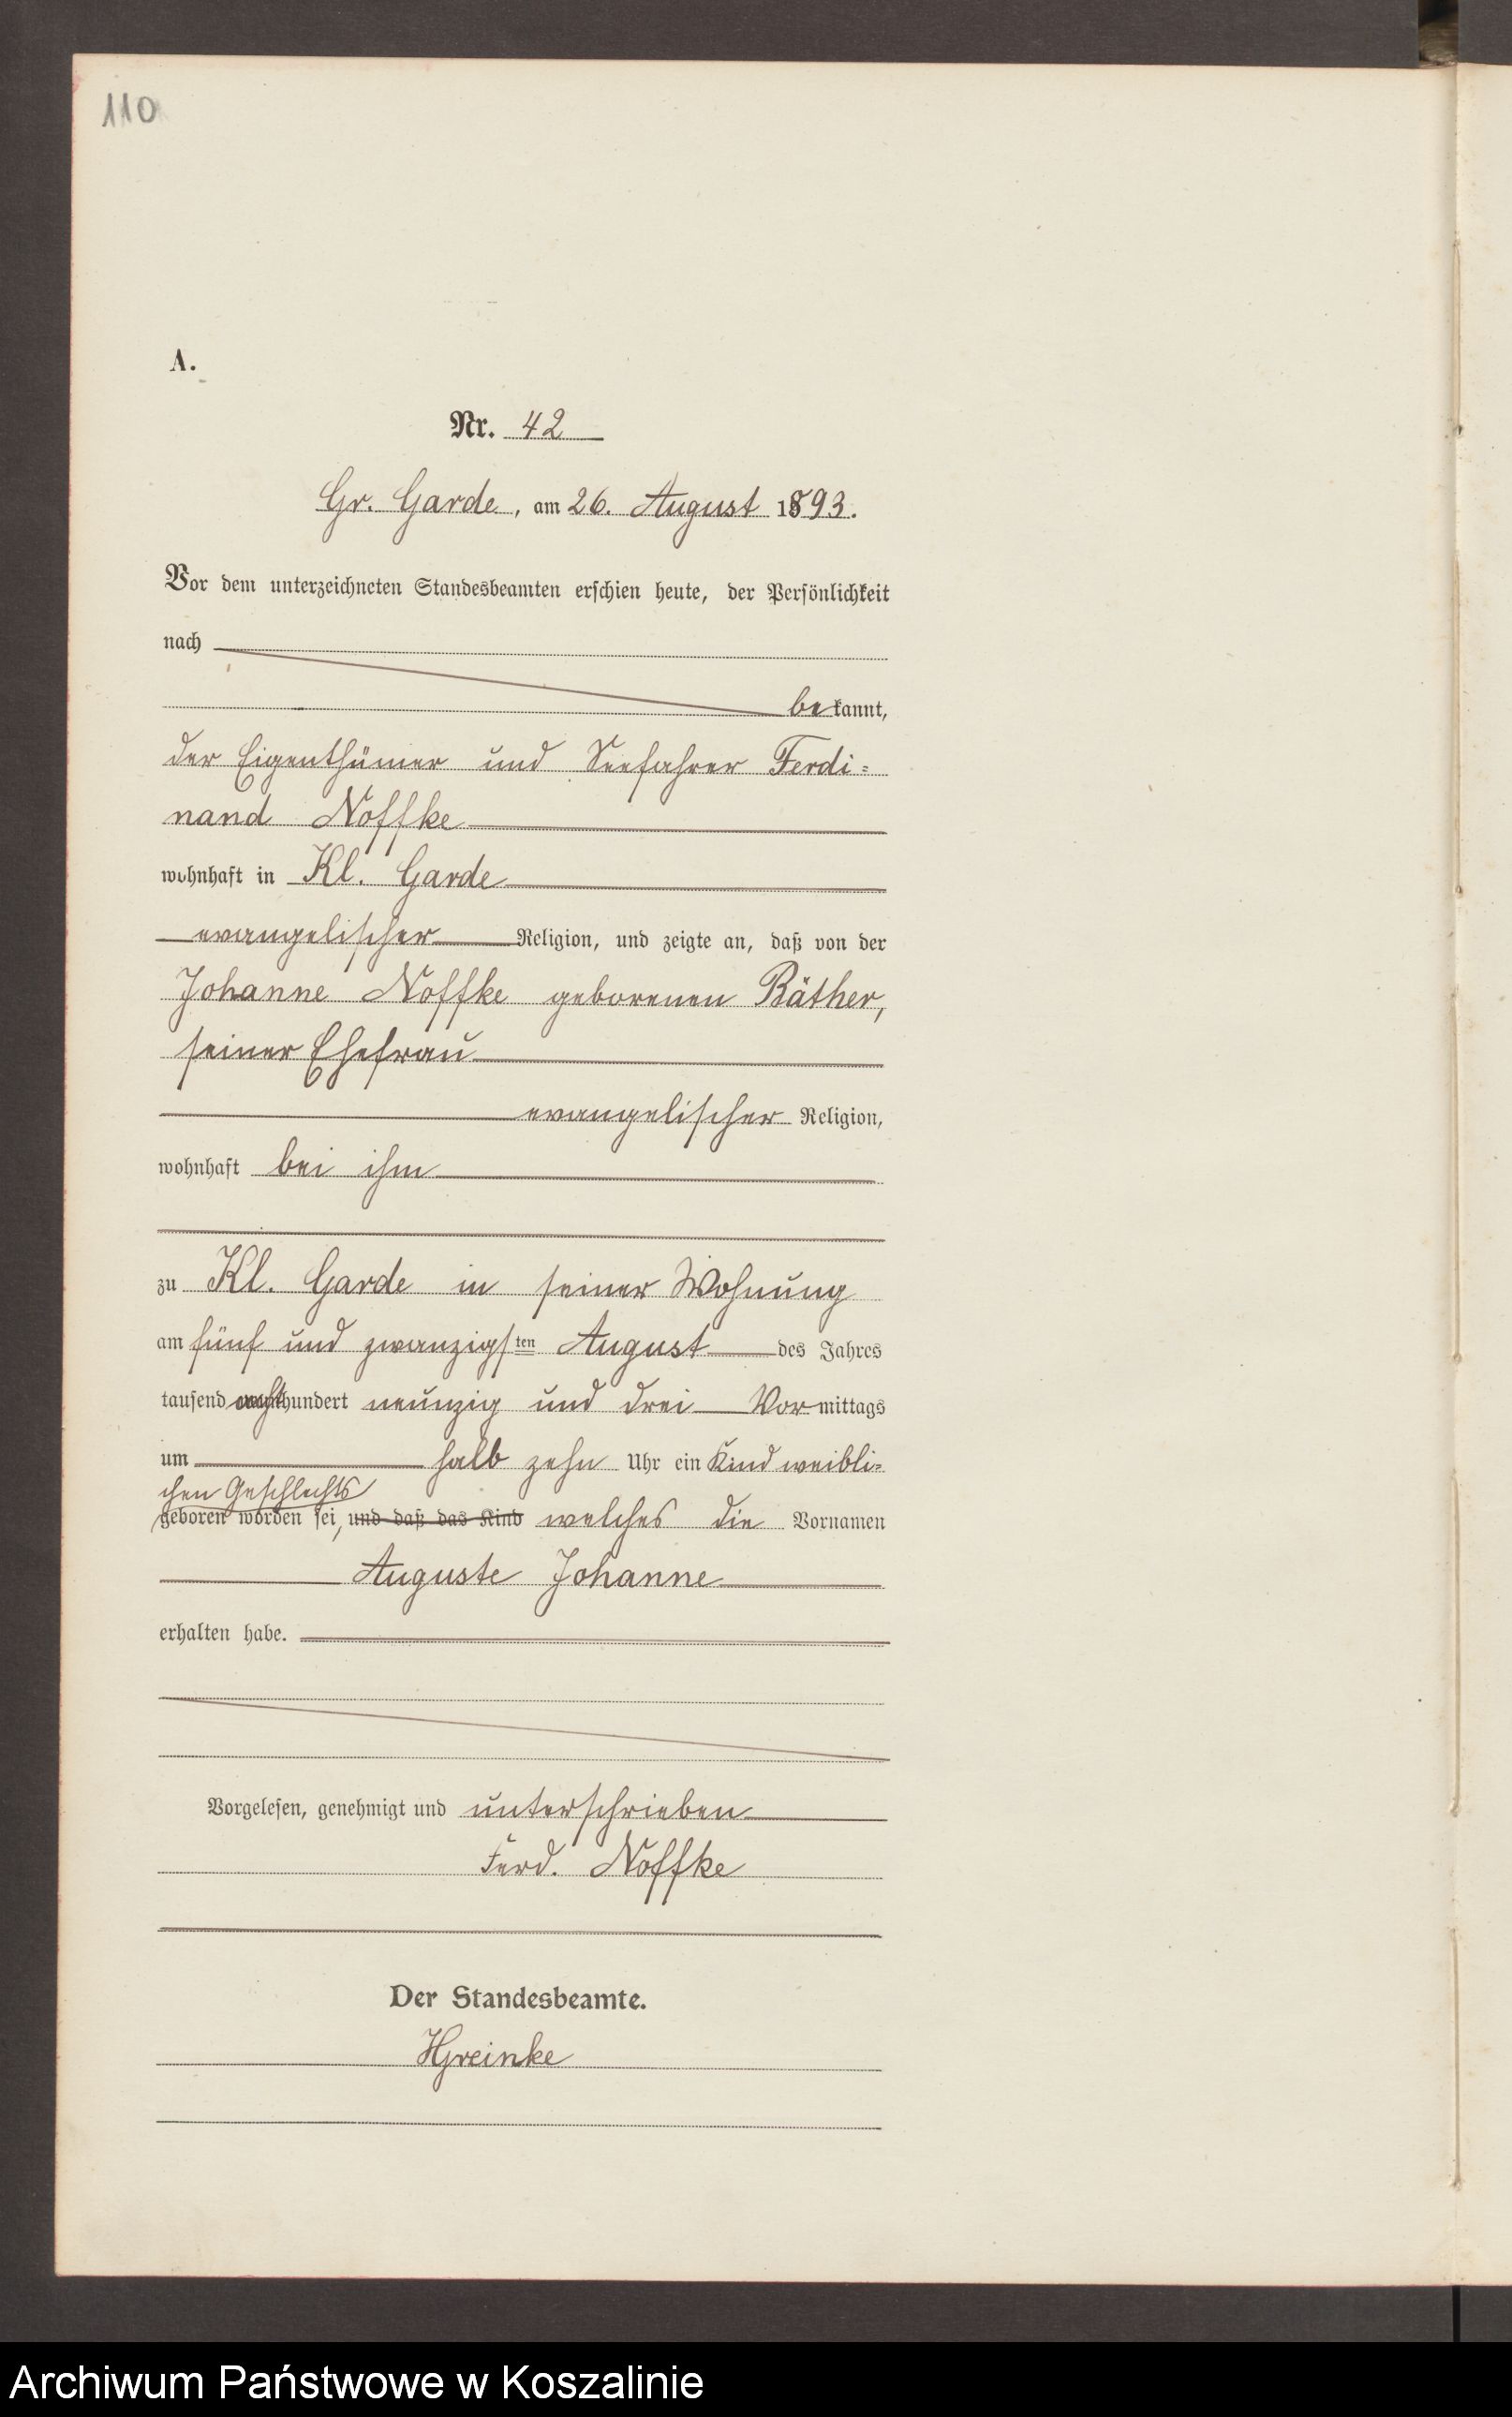 110
A.
Nr. 42
Gr. Garde, am 26. August 1893.
Vor dem unterzeichneten Standesbeamten erschien heute, der Persönlichkeit
nach
bekannt,
der Eigenthümer und Seefahrer Ferdi=
nand Noffke
wohnhaft in Kl. Garde
evangelischer Religion, und zeigte an, daß von der
Johanne Noffke geborenen Bäther,
seiner Ehefrau
evangelischer Religion,
wohnhaft bei ihm
zu Kl. Garde in seiner Wohnung
am fünf und zwanzigsten August des Jahres
tausend achthundert neunzig und drei Vormittags
um halb zehn Uhr ein Kind weibli=
chen Geschlechts
geboren worden sei, und daß das Kind welches die Vornamen
Auguste Johanne
erhalten habe.
Vorgelesen, genehmigt und unterschrieben
Ferd. Noffke
Der Standesbeamte.
Archiwum Państwowe w Koszalinie